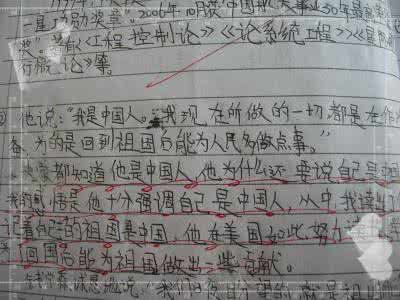 一星功勋奖章”。2006年10月获“中国航天事业50年最
奖”。著《工程控制论》《论系统工程》《星际
行概论》等。
他说：“我是中国人。我现在所做的一切都是在作
备，为的是回到祖国后能为人民多做点事。”
都知道他是中国人，他为什么还要说自己是中国
我的感悟是他十分强调自己是中国人，从中，我读出了
记着自己的祖国是中国，他在美国如此努力
回国后能为祖国做出一些贡献。
诚恳地说：“我们